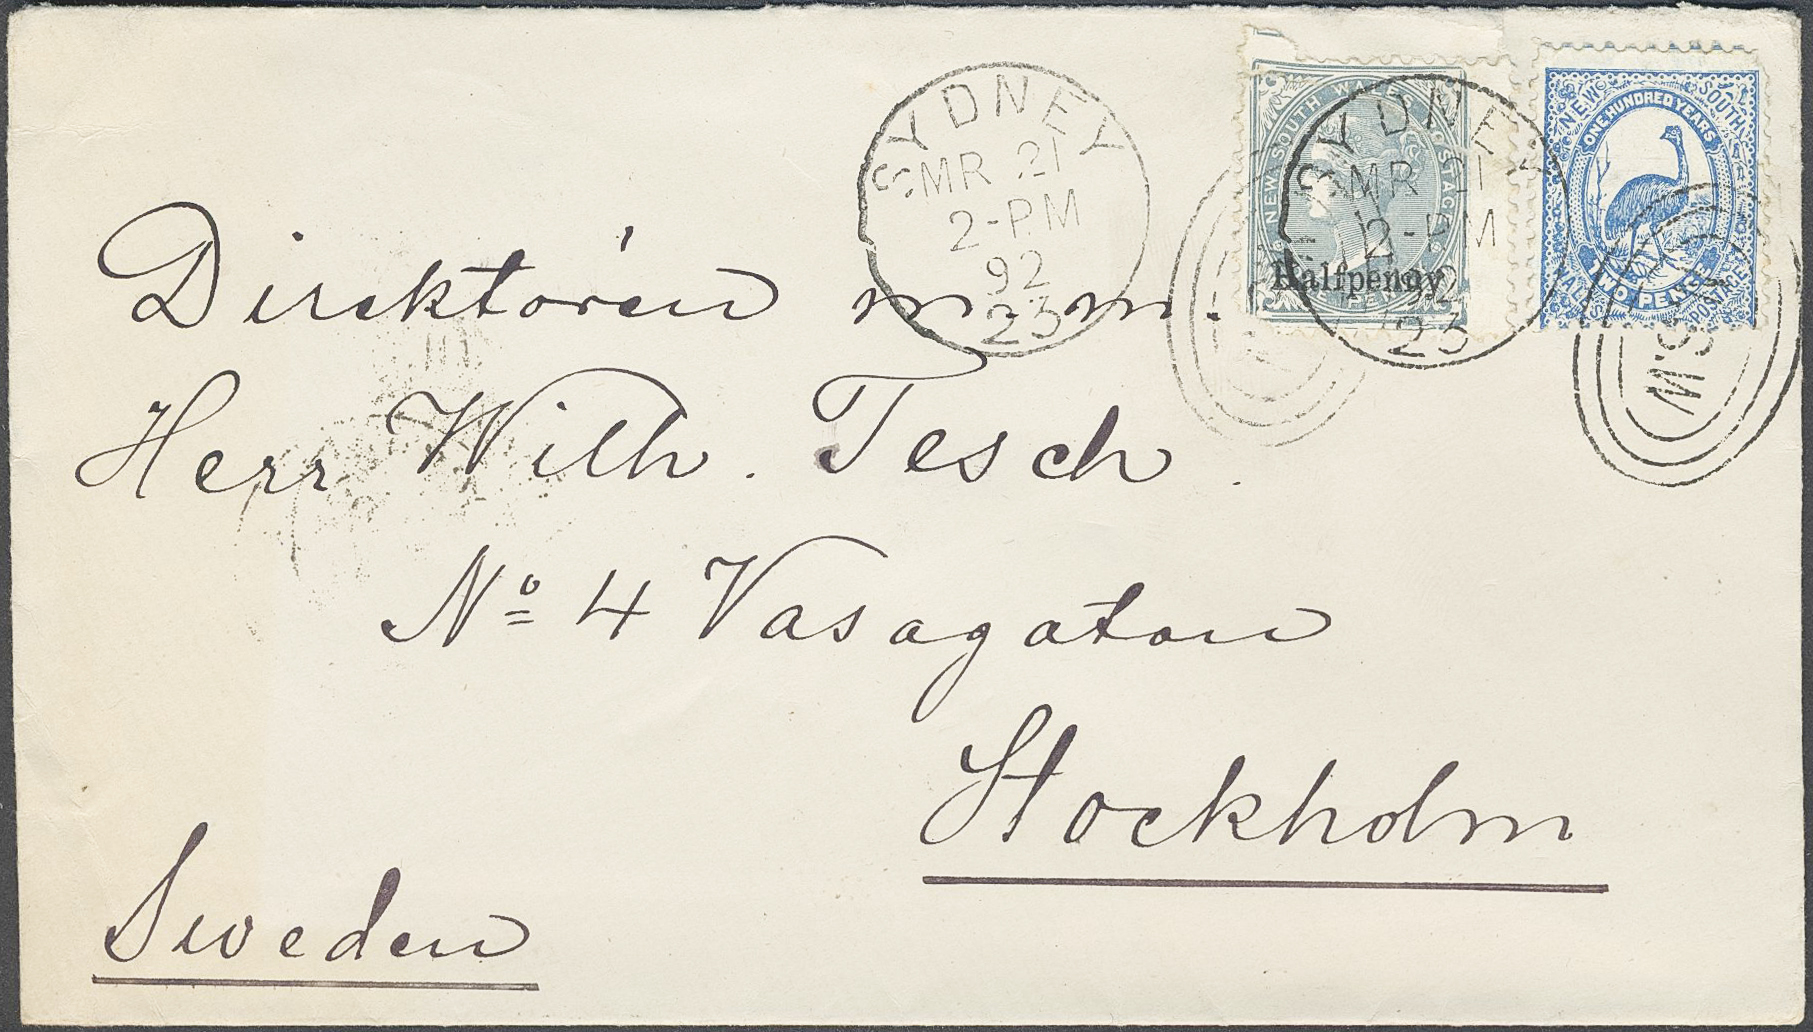 SYDNEY
MR 21
2-PM
92
23
NEW SOUTH WALES POSTAGE
Halfpenny
SYDNEY
MR 21
2-PM
92
23
NEW SOUTH WALES POSTAGE
ONE HUNDRED YEARS
TWO PENCE
N.S.W
Direktören m. m.
Herr Wilh. Tesch.
No 4 Vasagatan
Stockholm
Sweden